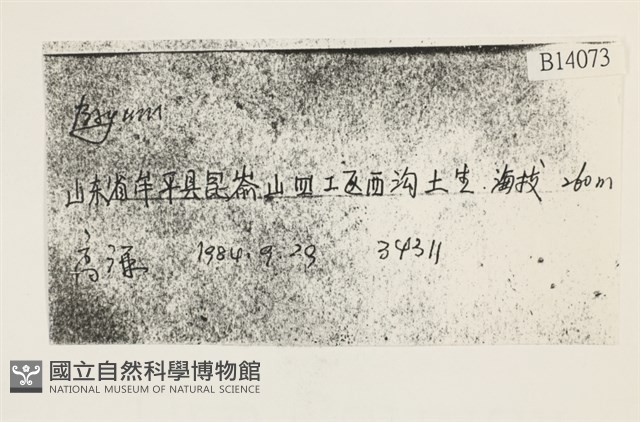 B14073
Bryum
山东省牟平县昆嵛山四工区西沟土生. 海拔 260m
高谦 1984.9.29 34311
國立自然科學博物館
NATIONAL MUSEUM OF NATURAL SCIENCE